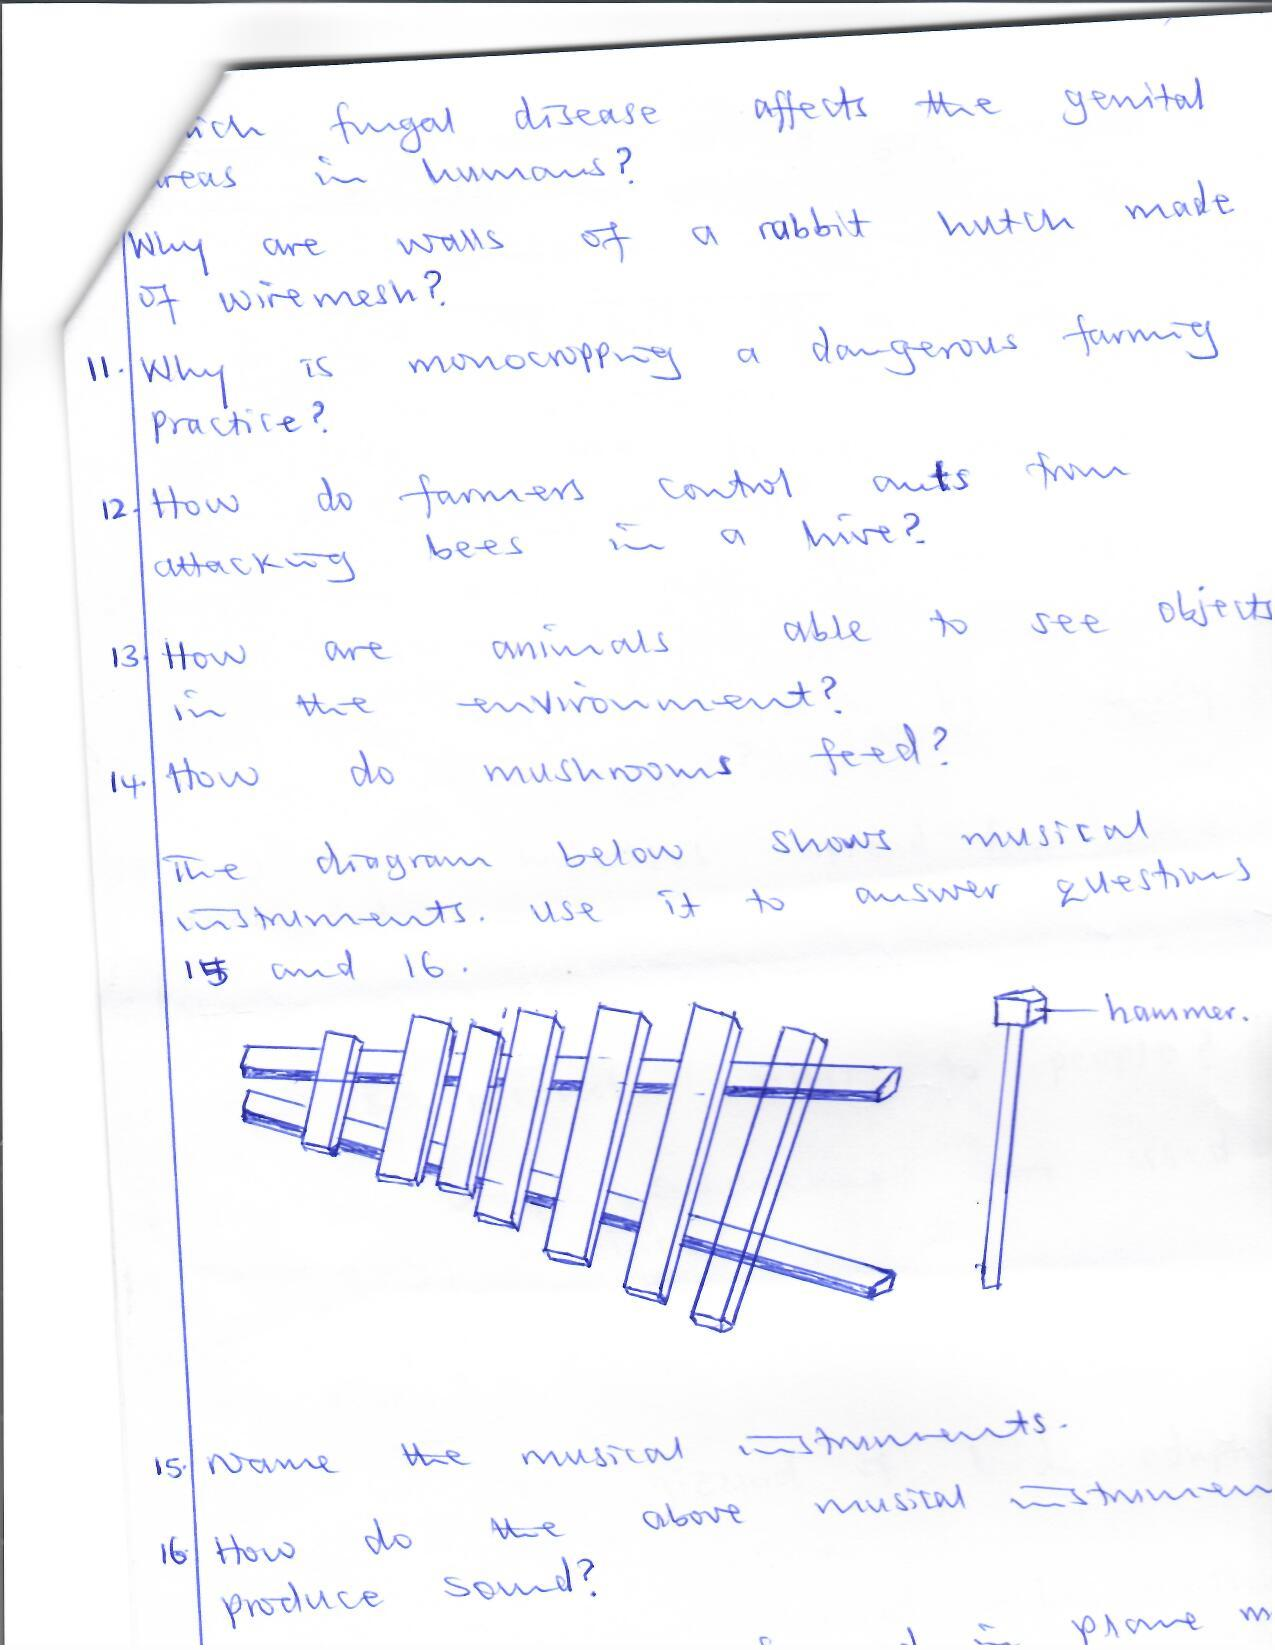 fungal disease affects the genital
in humans?
Why are walls of a rabbit hutch made
of wiremesh?
11. Why is monocropping a dangerous farming
practice?
12. How do farmers control ants from
attacking bees in a hive?
13. How are animals able to see objects
in the environment?
14. How do mushrooms feed?
The diagram below shows musical
instruments. Use it to answer questions
15 and 16.
hammer.
15. Name the musical instruments.
16. How do the above musical
produce sound?
in